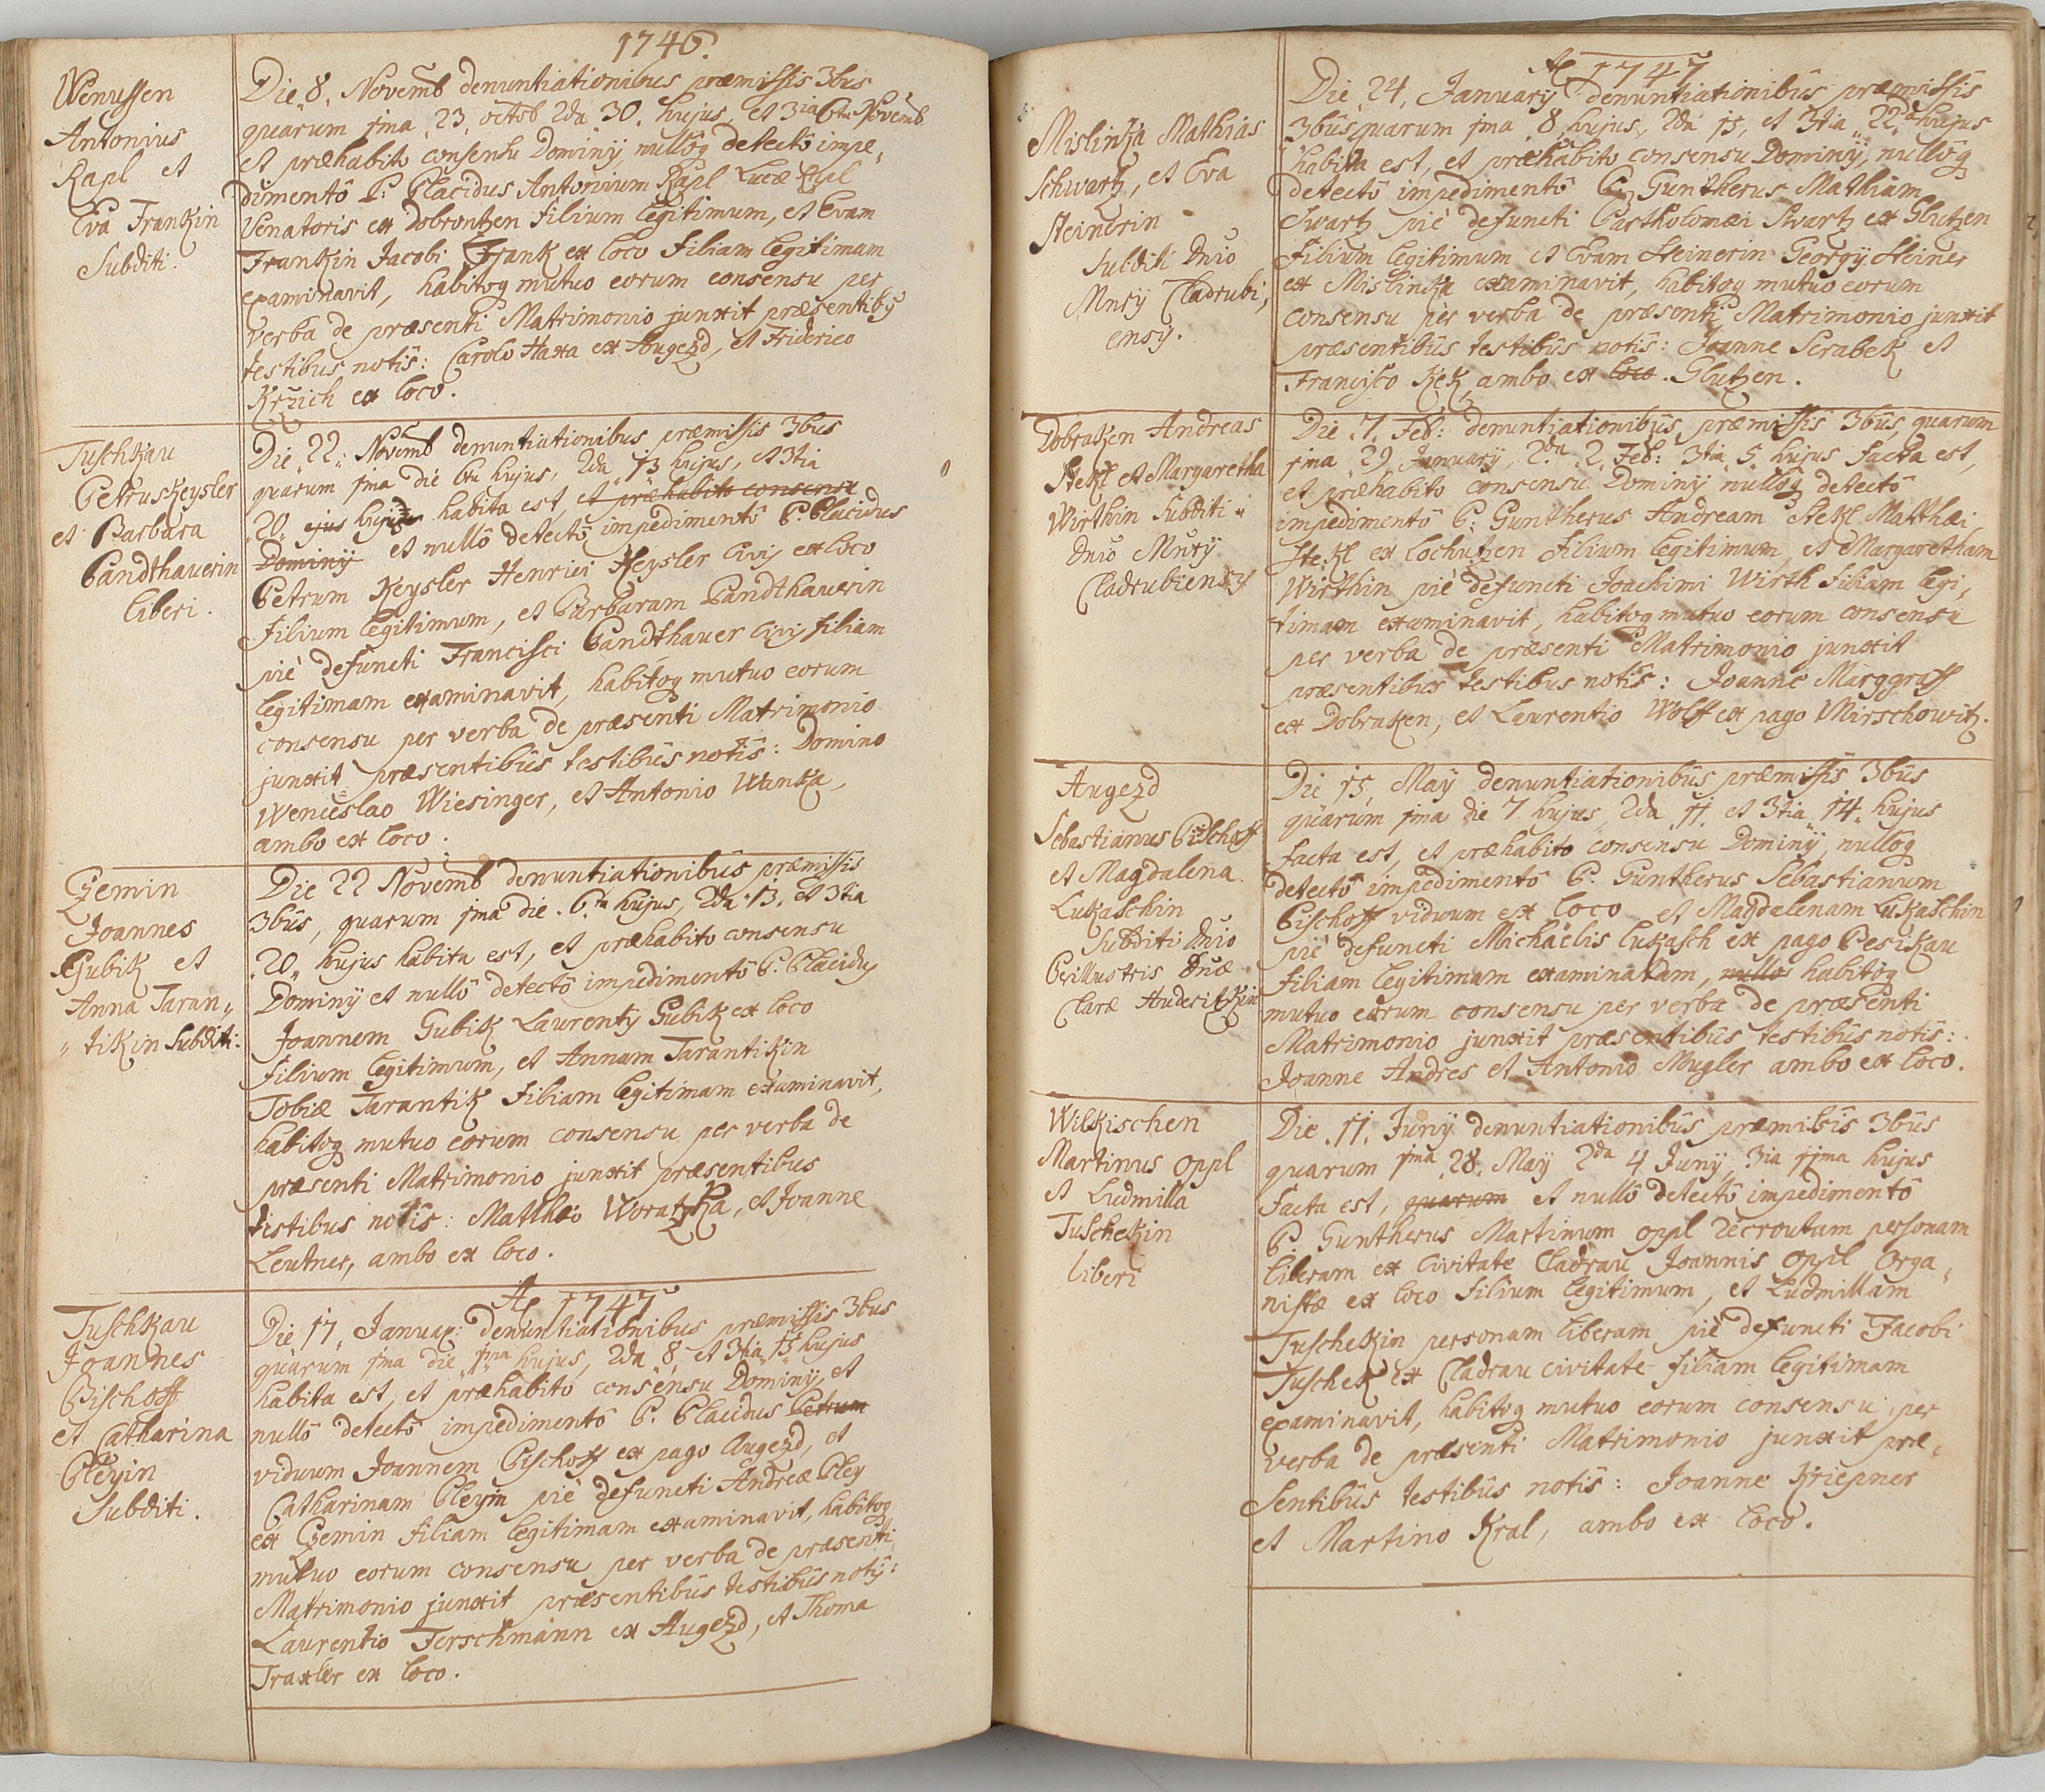 1746.
Wenussen
Antonius
Rapl et
Eva Frankin
Subditi.
Die 8. Novemb denuntiationibus præmissis 3bus
quarum jma 23. octob 2da 30. hujus, et 3ia 6ta Novemb
et præhabito consensu Dominÿ, nullôq detectô impe,
dimentô P: Placidus Antonium Rapl Lucæ Rapl
Venatoris ex Dobrontzen filium legitimum, et Evam
Frankin Jacobi Frank ex loco filiam legitimam
examinavit, habitoq mutuo eorum consensu per
verba de præsenti Matrimonio junxit præsentibg
testibus notis: Carolo Haxa ex Augezd, et Friderico
Kržich ex loco.
Tuschkau
Petrus Keysler
et Barbara
Pandthauerin
liberi.
Die 22: Novemb denuntiationibus præmissis 3bus
quarum jma die 6ta hujus, 2da 13 hujus, et 3tia
20. ejus hujus habita est, et præhabito consensu
Dominÿ et nullô detectô impedimentô P. Placidus
Petrum Keysler Henrici Keysler Civis ex loco
filium legitimum, et Barbaram Pandthauerin
piè defuncti Francisci Pandthauer Civis filiam
legitimam examinavit, habitoq mutuo eorum
consensu per verba de præsenti Matrimonio
junxit præsentibûs testibûs notis: Domino
Wenceslao Wiesinger, et Antonio Wanka,
ambo ex loco.
Czemin
Joannes
Gubik et
Anna Taran„
„tikin Subditi:
Die 22 Novemb denuntiationibûs præmissis
3bûs, quarum jma die 6.ta hujus, 2da 13. et 3tia
20 hujus habita est, et præhabito consensu
Dominÿ et nullô detectô impedimentô P. Placidus
Joannem Gubik Laurentÿ Gubik ex loco
filium legitimum, et Annam Tarantikin
Tobiæ Tarantik filiam legitimam examinavit,
habitoq mutuo eorum consensu per verba de
præsenti Matrimonio junxit præsentibus
testibus notis: Matthæo Woratzka, et Joanne
Leutner, ambo ex loco.
Ao 1747
Tuschkau
Joannes
Pischoff
et Catharina
Pleyin
Subditi.
Die 17. Januar: denuntiationibus præmissis 3bus
quarum jma die jma hujus, 2da 8, et 3tia 15 hujus
habita est, et præhabito consensu Dominÿ, et
nullô detectô impedimentô P. Placidus Petrum
viduum Joannem Pischoff ex pago Augezd, et
Catharinam Pleyin piè defuncti Andreæ Pley
ex Czemin filiam legitimam examinavit, habitoq
mutuo eorum consensu per verba de præsenti
Matrimonio junxit præsentibûs testibûs notÿ:
Laurentio Ferschmann ex Augezd, et Thoma
Traxler ex loco.
Ao 1747
Mislinka Mathias
Schwartz, et Eva
Steinerin
Subditi Dnio
Mnrÿ Cladrubi,
ensÿ.
Die 24. Januarÿ denuntiationibûs præmissis
3bûs quarum jma 8 hujus, 2da 15, et 3tia 22da hujus
habita est, et præhabito consensu Dominÿ, nullôq
detectô impedimentô P: Guntherus Mathiam
Swartz piè defuncti Partholomæi Swartz ex Glutzen
filium legitimum et Evam Steinerin Georgÿ Steiner
ex Mislinka examinavit, habitoq mutuo eorum
consensu per verba de præsenti Matrimonio junxit
præsentibûs testibûs notis: Joanne Scrabek et
Francisco Kek, ambo ex loco. Glutzen.
Dobraken Andreas
Stekl et Margaretha
Wirthin Subditi
Dnio Mnrÿ
Cladrubiensÿ
Die 7. Feb: denuntiationibûs præmissis 3bûs, quarum
jma 29. Januarÿ, 2da 2. Feb: 3tia 5 hujus facta est,
et præhabito consensu Dominÿ nullôq detectô
impedimentô P: Guntherus Andream Stekl Matthæi
Stekl ex Lochutzen filium legitimum, et Margaretham
Wirthin piè defuncti Joachimi Wirth filiam legi,
timam examinavit, habitoq mutuo eorum consensu
per verba de præsenti Matrimonio junxit
præsentibus testibus notis: Joanne Marggraff
ex Dobraken, et Laurentio Wolff ex pago Mirschowitz.
Augezd
Sebastianus Pischoff
et Magdalena
Lukaschin
Subditi Dnio
Perillustris Dnæ
Claræ Huderitzkin
Die 15. Maÿ denuntiationibûs præmissis 3bûs
quarum jma die 7 hujus, 2da 11. et 3tia 14 hujus
facta est, et præhabito consensu Dominÿ, nullôq
detectô impedimentô P. Guntherus Sebastianum
Pischoff viduum ex loco et Magdalenam Lukaschin
piè defuncti Michaelis Lukasch ex pago Pesikau
filiam legitimam examinatam, nullo habitôq
mutuo eorum consensu per verba de præsenti
Matrimonio junxit præsentibûs testibûs notis:
Joanne Andres et Antonio Mugler ambo ex loco.
Wilkischen
Martinus Oppl
et Ludmilla
Tuschekin
liberi
Die 11. Junÿ denuntiationibûs præmibis 3bûs
quarum jma 28. Maÿ 2da 4 Junÿ, 3ia 11ma hujus
facta est, quarum et nullô detectô impedimentô
P. Guntherus Martinum Oppl recroutum personam
liberam ex Civitate Cladrau Joannis Oppl Orga,
nistæ ex loco filium legitimum, et Ludmillam
Tuschekin personam liberam piè defuncti Jacobi
Tuschek ex Cladrau civitate filiam legitimam
examinavit, habitoq mutuo eorum consensu per
verba de præsenti Matrimonio junxit præ,
sentibûs testibûs notis: Joanne Kriepner
et Martino Kral, ambo ex loco.